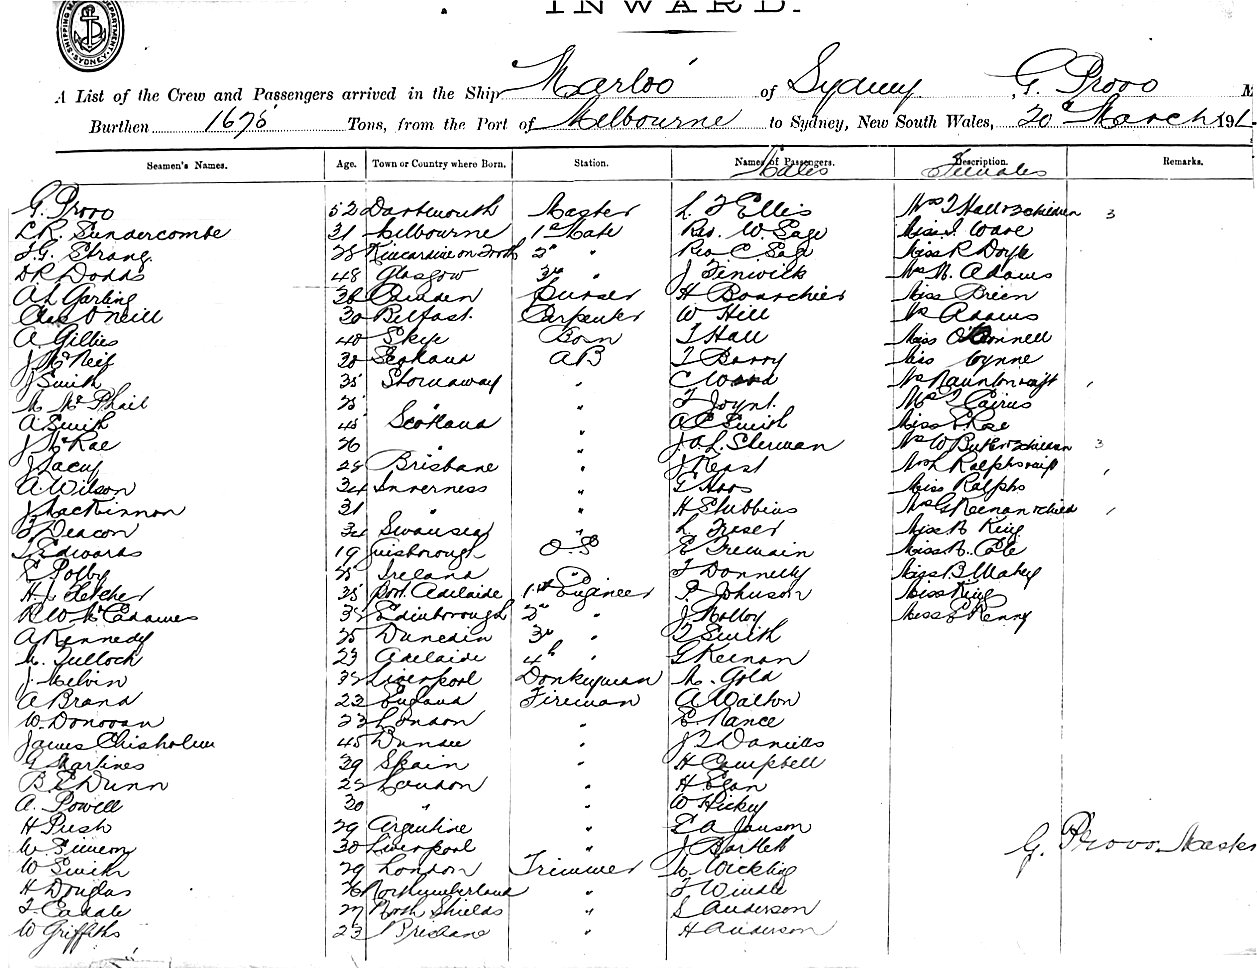 INWARD.
SHIPPING DEPARTMENT SYDNEY
A List of the Crew and Passengers arrived in the Ship Marloo of Sydney, G. Provo
Burthen 1678 Tons, from the Port of Melbourne to Sydney, New South Wales, 20th March 191
Seamen's Names. Age. Town or Country where Born. Station. Names of Passengers. Description. Remarks.
Males Females
G. Provo 52 Dartmouth Master L. T Ellis Mrs T Hall & 3 children 3
L.R. Sundercombe 31 Melbourne 1st Mate Rev. W. Sage Miss I. Wave
T.G. Strang 28 Kincardine on Forth 2nd " Rev C. Sage Miss R Doyle
D.R Dodds 48 Glasgow 3rd " J Fenwick Mrs M. Adams
A L Garling 38 Purser H Bourchier Miss Breen
O'Neill 30 Belfast Carpenter W Hill Mr Adams
A Gillies 40 Skye Bosn T Hall Miss O'Connell
J McNeil 30 Scotland AB T Barry Miss Wynne
J Smith 35 Stornaway " C Wood Mrs
M McPhail 25 " " T Joynt Mrs T Cairns
A Smith 45 Scotland " A E Smith Miss E Rose
J McRae 26 " " J.A.L. Sherman Mrs W Butler & 3 children 3
J Lacey 28 Brisbane " J Keast Mrs L Ralphs
A. Wilson 34 Inverness " G Miss Ralphs
J MacKinnon 31 " " H E Stubbins Mrs G Keenan & child
F Deacon 34 Swansea " L Freser Miss N King
T Edwards 19 Guisborough O.S E Tremain Miss N. Cole
E Polby 25 Ireland " T Donnelly Miss B Makey
H.J. Fletcher 35 Port Adelaide 1st Engineer P Johnson Miss King
R.W. McEadames 35 Edinborough 2nd " J Molloy Miss E Kenny
A Kennedy 25 Dunedin 3rd " T Smith
M. Tulloch 23 Adelaide 4th " G Keenan
J. Melvin 32 Liverpool Donkeyman M. Gold
A Brand 22 England Fireman A Walton
W. Donovan 23 London " E. Nance
James Chisholm 45 Dundee " J B Daniells
G Martines 39 Spain " H Campbell
B E Dunn 25 London " H Egan
A. Powell 30 " " W Hickey
H Push 29 Argentine " E A Janson
W. Simeon 30 Liverpool " J Bartlett
G. Provo. Master
W Smith 29 London Trimmer L. Wickling
H Douglas 26 Northumberland " T Windle
T. Eadale 27 North Shields " S Anderson
W Griffiths 23 Brisbane " H Anderson